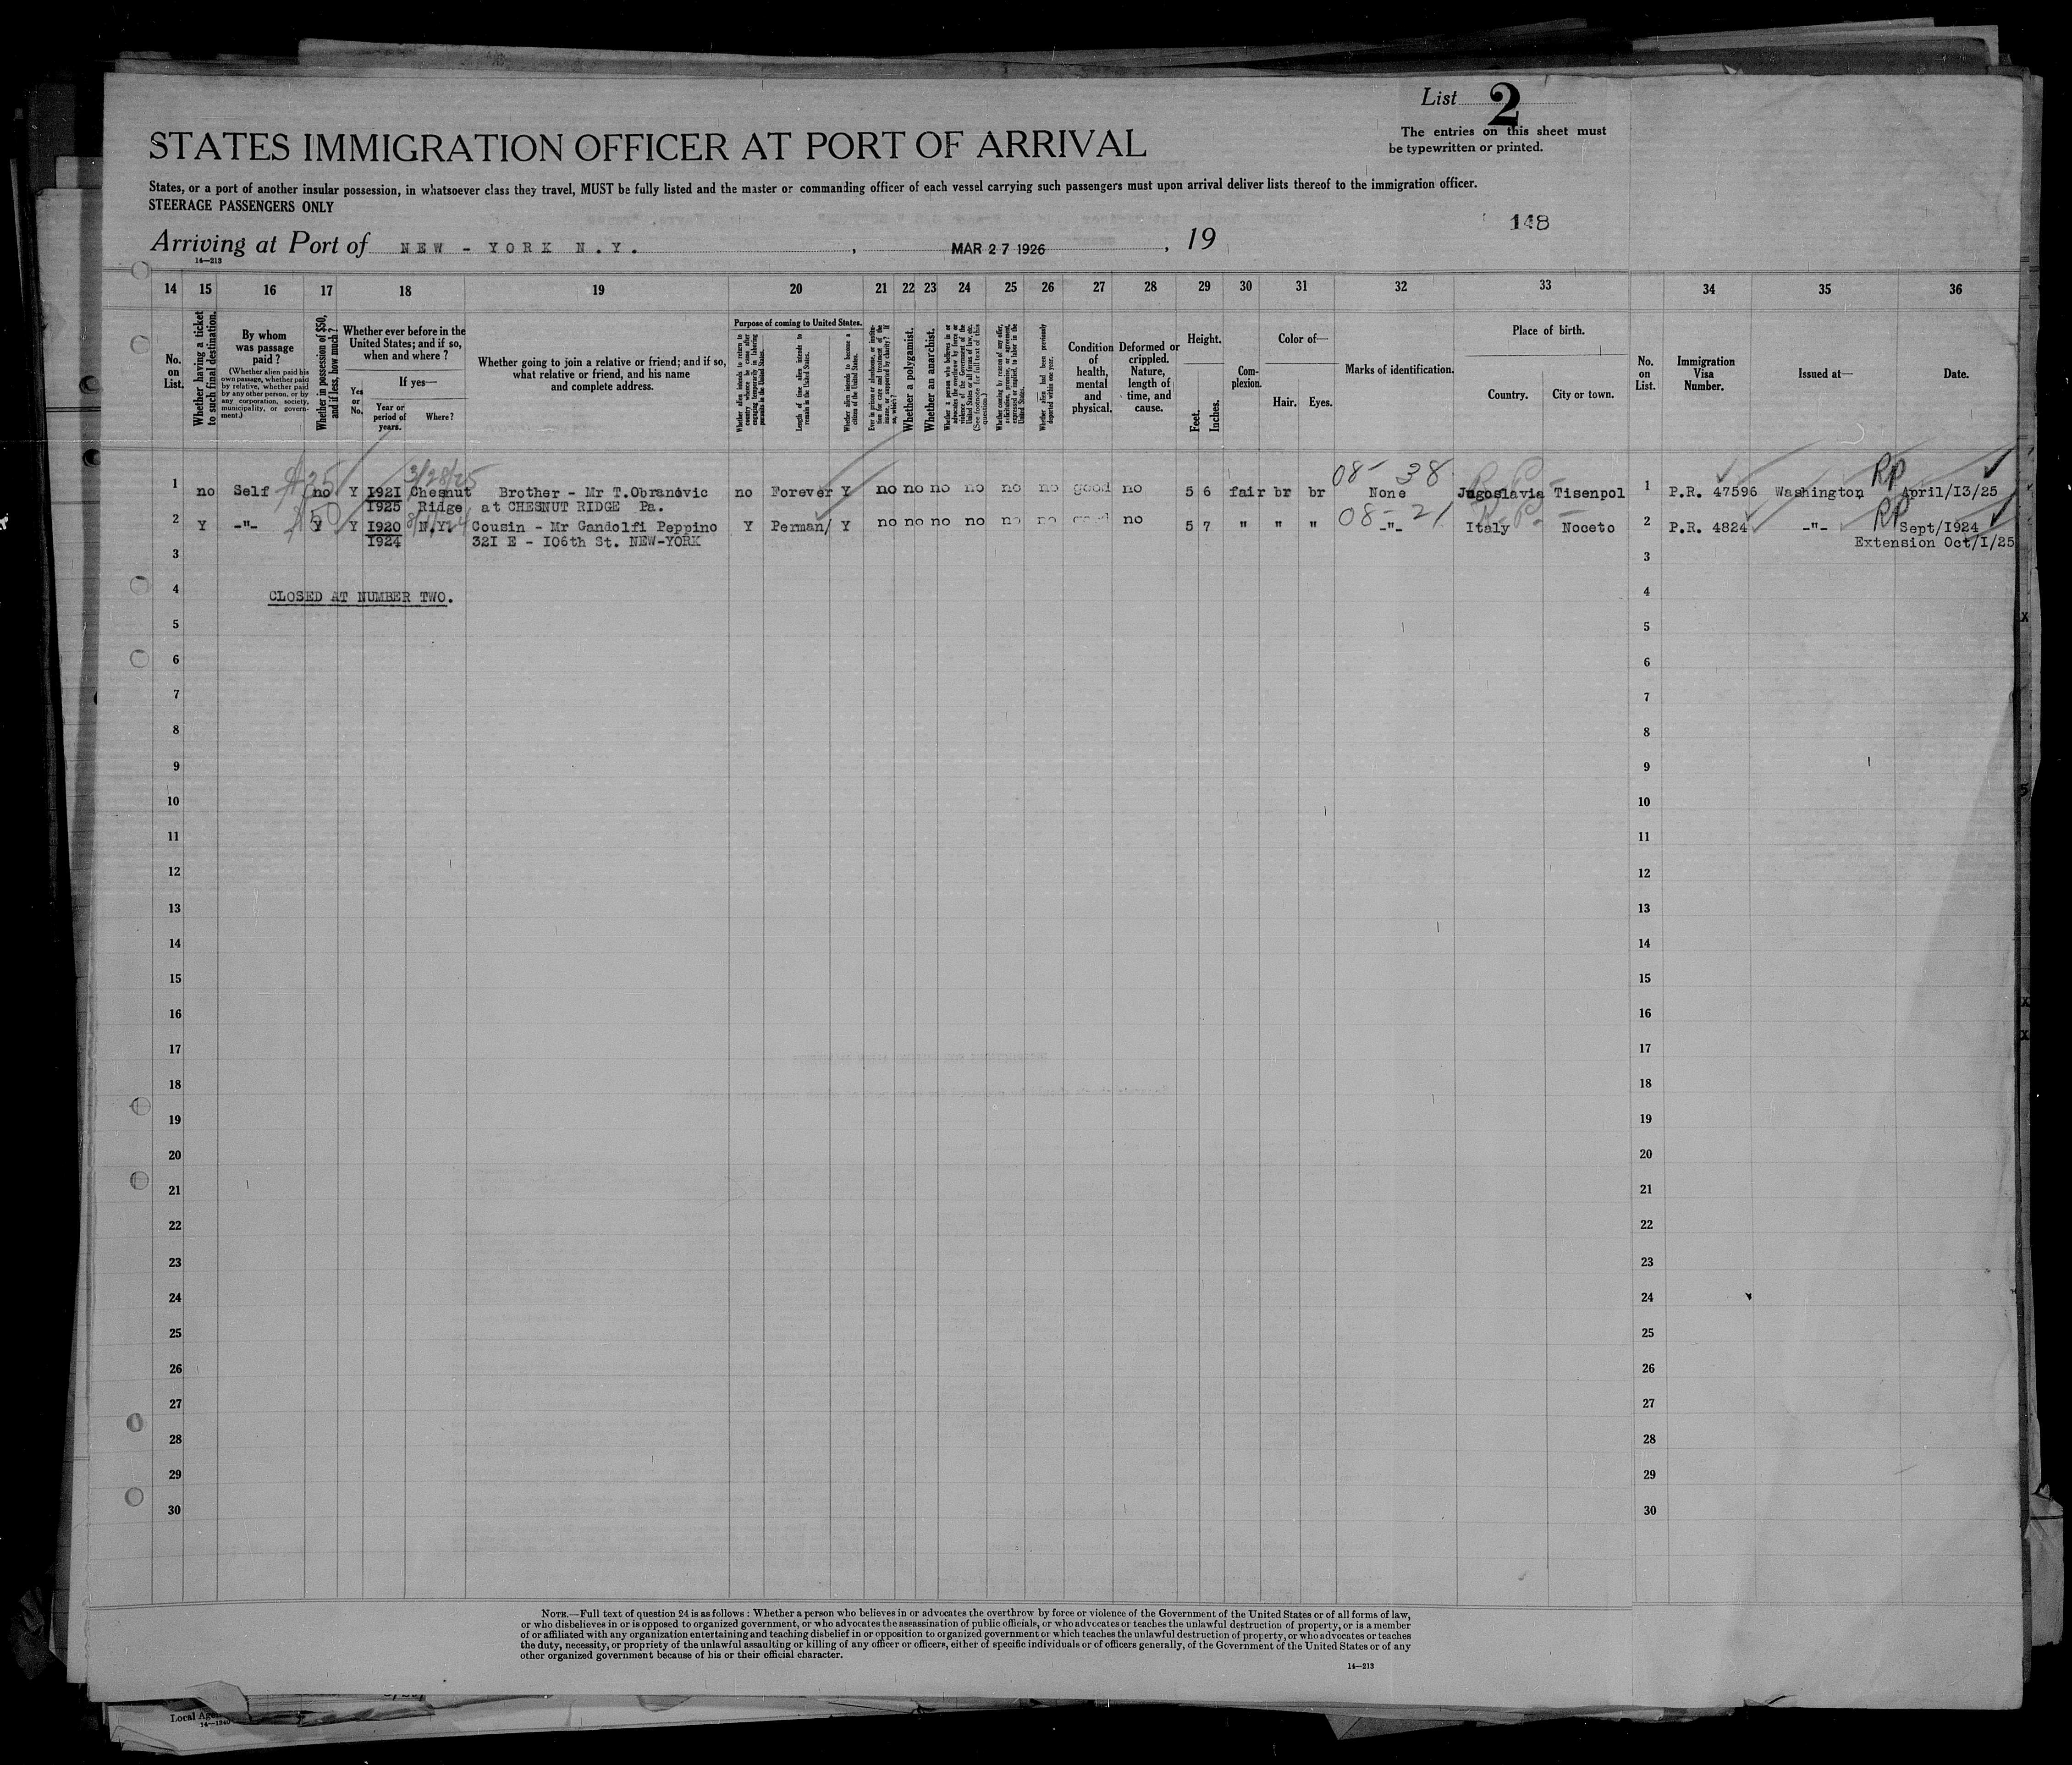 List 2
The entries on this sheet must
be typewritten or printed.
STATES IMMIGRATION OFFICER AT PORT OF ARRIVAL
States, or a port of another insular possession, in whatsoever class they travel, MUST be fully listed and the master or commanding officer of each vessel carrying such passengers must upon arrival deliver lists thereof to the immigration officer.
STEERAGE PASSENGERS ONLY
148
Arriving at Port of NEW - YORK N.Y. , MAR 27 1926 , 19
14—213
14 15 16 17 18 19 20 21 22 23 24 25 26 27 28 29 30 31 32 33 34 35 36
No. on List.
Whether having a ticket to such final destination.
By whom was passage paid?
(Whether alien paid his own passage, whether paid by relative, whether paid by any other person, or by any corporation, society, municipality, or government.)
Whether in possession of $50, and if less, how much?
Whether ever before in the United States; and if so, when and where?
Yes or No.
If yes—
Year or period of years.
Where?
Whether going to join a relative or friend; and if so, what relative or friend, and his name and complete address.
Purpose of coming to United States.
Whether alien intends to return to country whence he came after engaging temporarily in laboring pursuits in the United States.
Length of time alien intends to remain in the United States.
Whether alien intends to become a citizen of the United States.
Ever in prison or almshouse, or institution for care and treatment of the insane, or supported by charity? If so, which?
Whether a polygamist.
Whether an anarchist.
Whether a person who believes in or advocates the overthrow by force or violence of the Government of the United States or all forms of law, etc. (See footnote for full text of this question.)
Whether coming by reason of any offer, solicitation, promise, or agreement, expressed or implied, to labor in the United States.
Whether alien had been previously deported within one year.
Condition of health, mental and physical.
Deformed or crippled. Nature, length of time, and cause.
Height.
Feet. Inches.
Complexion.
Color of—
Hair. Eyes.
Marks of identification.
Place of birth.
Country. City or town.
No. on List.
Immigration Visa Number.
Issued at—
Date.
$25 3/28/25 08- 38 R.P. RP
1 no Self no Y 1921 Chesnut Brother - Mr T.Obranovic no Forever Y no no no no no no good no 5 6 fair br br None Jugoslavia Tisenpol 1 P.R. 47596 Washington April/13/25
1925 Ridge at CHESNUT RIDGE Pa.
$50 08-21 R.P. RP
2 Y -"- Y Y 1920 N.Y. Cousin - Mr Gandolfi Peppino Y Perman/ Y no no no no no no good no 5 7 " " " -"- Italy Noceto 2 P.R. 4824 -"- Sept/1924
1924 321 E - 106th St. NEW-YORK Extension Oct/1/25
3 3
4 4
CLOSED AT NUMBER TWO.
5 5
6 6
7 7
8 8
9 9
10 10
11 11
12 12
13 13
14 14
15 15
16 16
17 17
18 18
19 19
20 20
21 21
22 22
23 23
24 24
25 25
26 26
27 27
28 28
29 29
30 30
NOTE.—Full text of question 24 is as follows: Whether a person who believes in or advocates the overthrow by force or violence of the Government of the United States or of all forms of law,
or who disbelieves in or is opposed to organized government, or who advocates the assassination of public officials, or who advocates or teaches the unlawful destruction of property, or is a member
of or affiliated with any organization entertaining and teaching disbelief in or opposition to organized government or which teaches the unlawful destruction of property, or who advocates or teaches
the duty, necessity, or propriety of the unlawful assaulting or killing of any officer or officers, either of specific individuals or of officers generally, of the Government of the United States or of any
other organized government because of his or their official character.
14—213
Local
14—1940